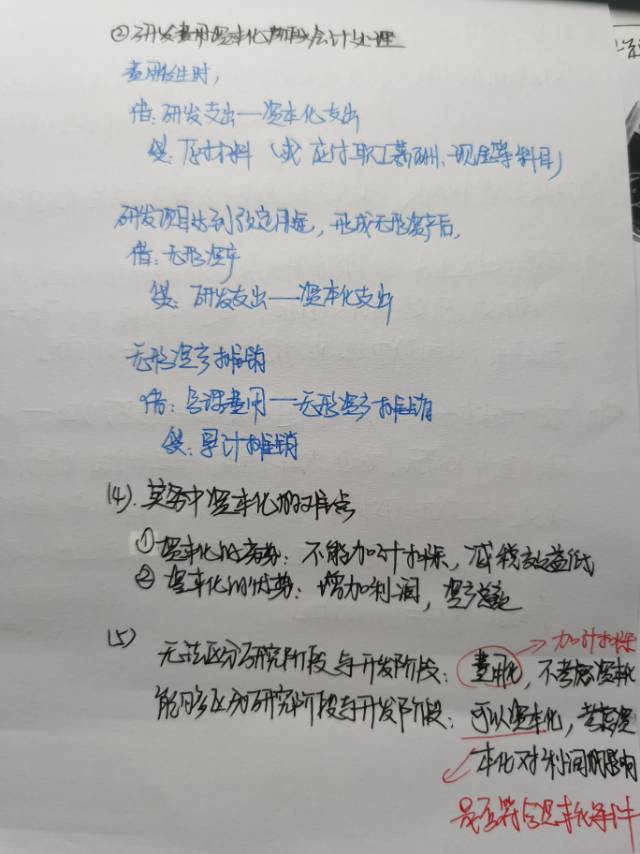 ②研发费用资本化阶段会计处理
费用发生时,
借:研发支出—资本化支出
贷:原材料(或 应付职工薪酬、现金等科目)
研发项目达到预定用途,形成无形资产后,
借:无形资产
贷:研发支出—资本化支出
无形资产摊销
借:管理费用—无形资产摊销
贷:累计摊销
(4).实务中资本化的难点
①资本化的劣势:不能加计扣除,减税效益低
②资本化的优势:增加利润,资产
(5)
加计扣除
无法区分研究阶段与开发阶段:费用化,不考虑资本化
能够区分研究阶段与开发阶段:可以资本化,考虑资
本化对利润的影响
是否符合资本化条件